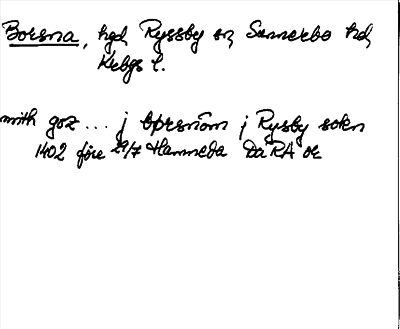 Borsna, hgd Ryssby sn, Sunnerbo hd,
Krbgs l.
mith goz ... j bprsnöm j Rysby sokn
1402 före 29/7 Hammeda DaRA or